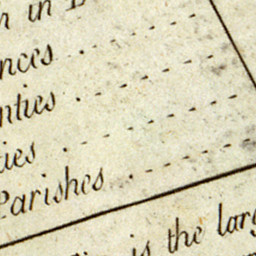 in
nces
nties
ies
Parishes
is the larg